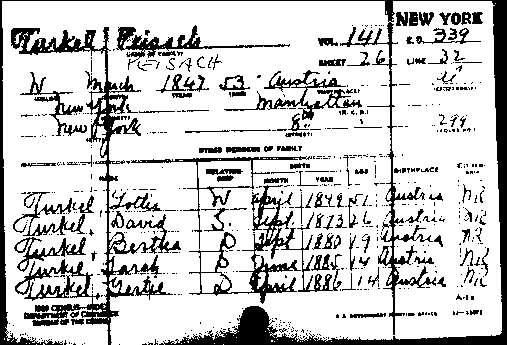 NEW YORK
Turkel, Peisach VOL. 141 E.D. 339
(HEAD OF FAMILY)
PEISACH SHEET 26 LINE 32
W March 1847 53 Austria
New York Manhattan
New York 8th 299
OTHER MEMBERS OF FAMILY
NAME RELATIONSHIP BIRTH AGE BIRTHPLACE
MONTH YEAR
Turkel, Lottie W April 1849 51 Austria NR
Turkel, David S. Sept. 1873 26 Austria NR
Turkel, Bertha D Sept 1880 19 Austria NR
Turkel, Sarah D June 1885 14 Austria NR
Turkel, Gertie D April 1886 14 Austria NR
1900 CENSUS—INDEX A-1a
DEPARTMENT OF COMMERCE
BUREAU OF THE CENSUS U. S. GOVERNMENT PRINTING OFFICE